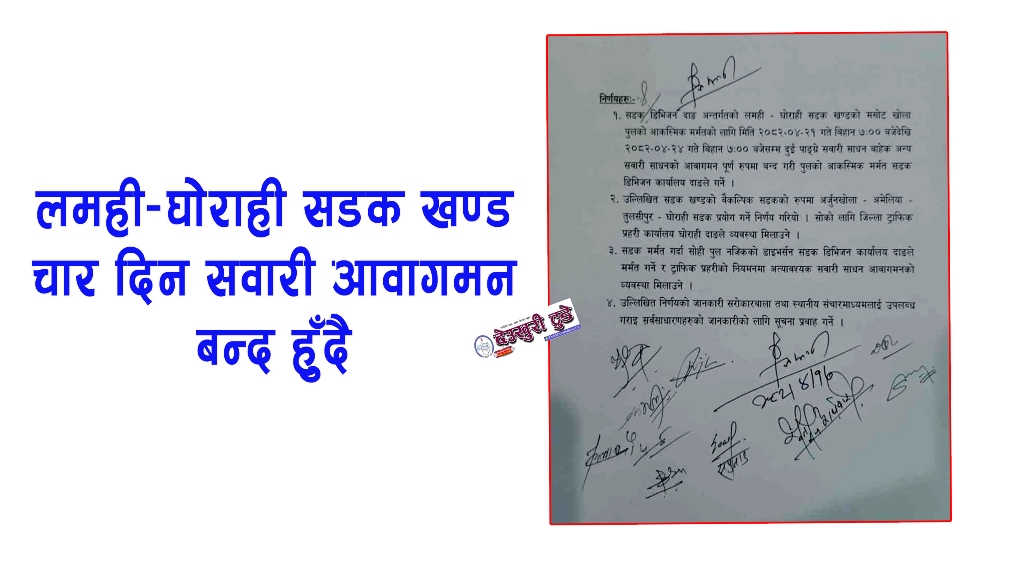 लमही-घोराही सडक खण्ड
चार दिन सवारी आवागमन
बन्द हुँदै
देउखुरी टुडे
निर्णयहरुः-
१. सडक डिभिजन दाङ अन्तर्गतको लमही - घोराही सडक खण्डको मसोट खोला
पुलको आकस्मिक मर्मतको लागि मिति २०८२-०४-२१ गते बिहान ७:०० बजेदेखि
२०८२-०४-२४ गते बिहान ७:०० बजेसम्म दुई पाङ्ग्रे सवारी साधन बाहेक अन्य
सवारी साधनको आवागमन पूर्ण रुपमा बन्द गरी पुलको आकस्मिक मर्मत सडक
डिभिजन कार्यालय दाङले गर्ने ।
२. उल्लिखित सडक खण्डको वैकल्पिक सडकको रुपमा अर्जुनखोला - अमेलिया -
तुलसीपुर - घोराही सडक प्रयोग गर्ने निर्णय गरियो । सोको लागि जिल्ला ट्राफिक
प्रहरी कार्यालय घोराही दाङले व्यवस्था मिलाउने ।
३. सडक मर्मत गर्दा सोही पुल नजिकको डाइभर्सन सडक डिभिजन कार्यालय दाङले
मर्मत गर्ने र ट्राफिक प्रहरीको नियमनमा अत्यावश्यक सवारी साधन आवागमनको
व्यवस्था मिलाउने ।
४. उल्लिखित निर्णयको जानकारी सरोकारवाला तथा स्थानीय संचारमाध्यमलाई उपलब्ध
गराइ सर्वसाधारणहरुको जानकारीको लागि सूचना प्रवाह गर्ने ।